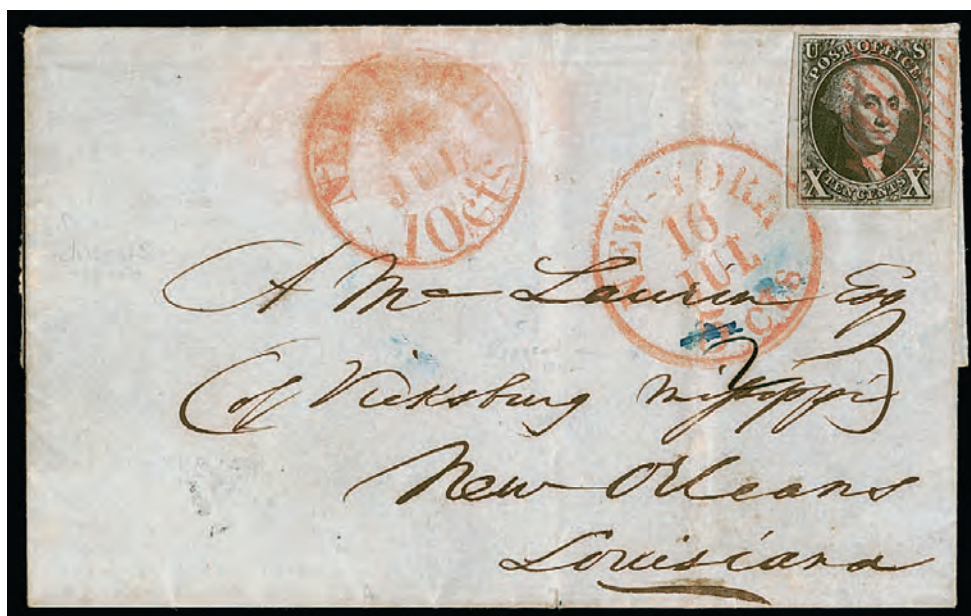 U S
POST OFFICE
X TEN CENTS X
JUL
10cts
NEW-YORK
16
JUL
cts
A Mc Laurin Esq
(of Vicksburg Missisippi)
New Orleans
Louisiana